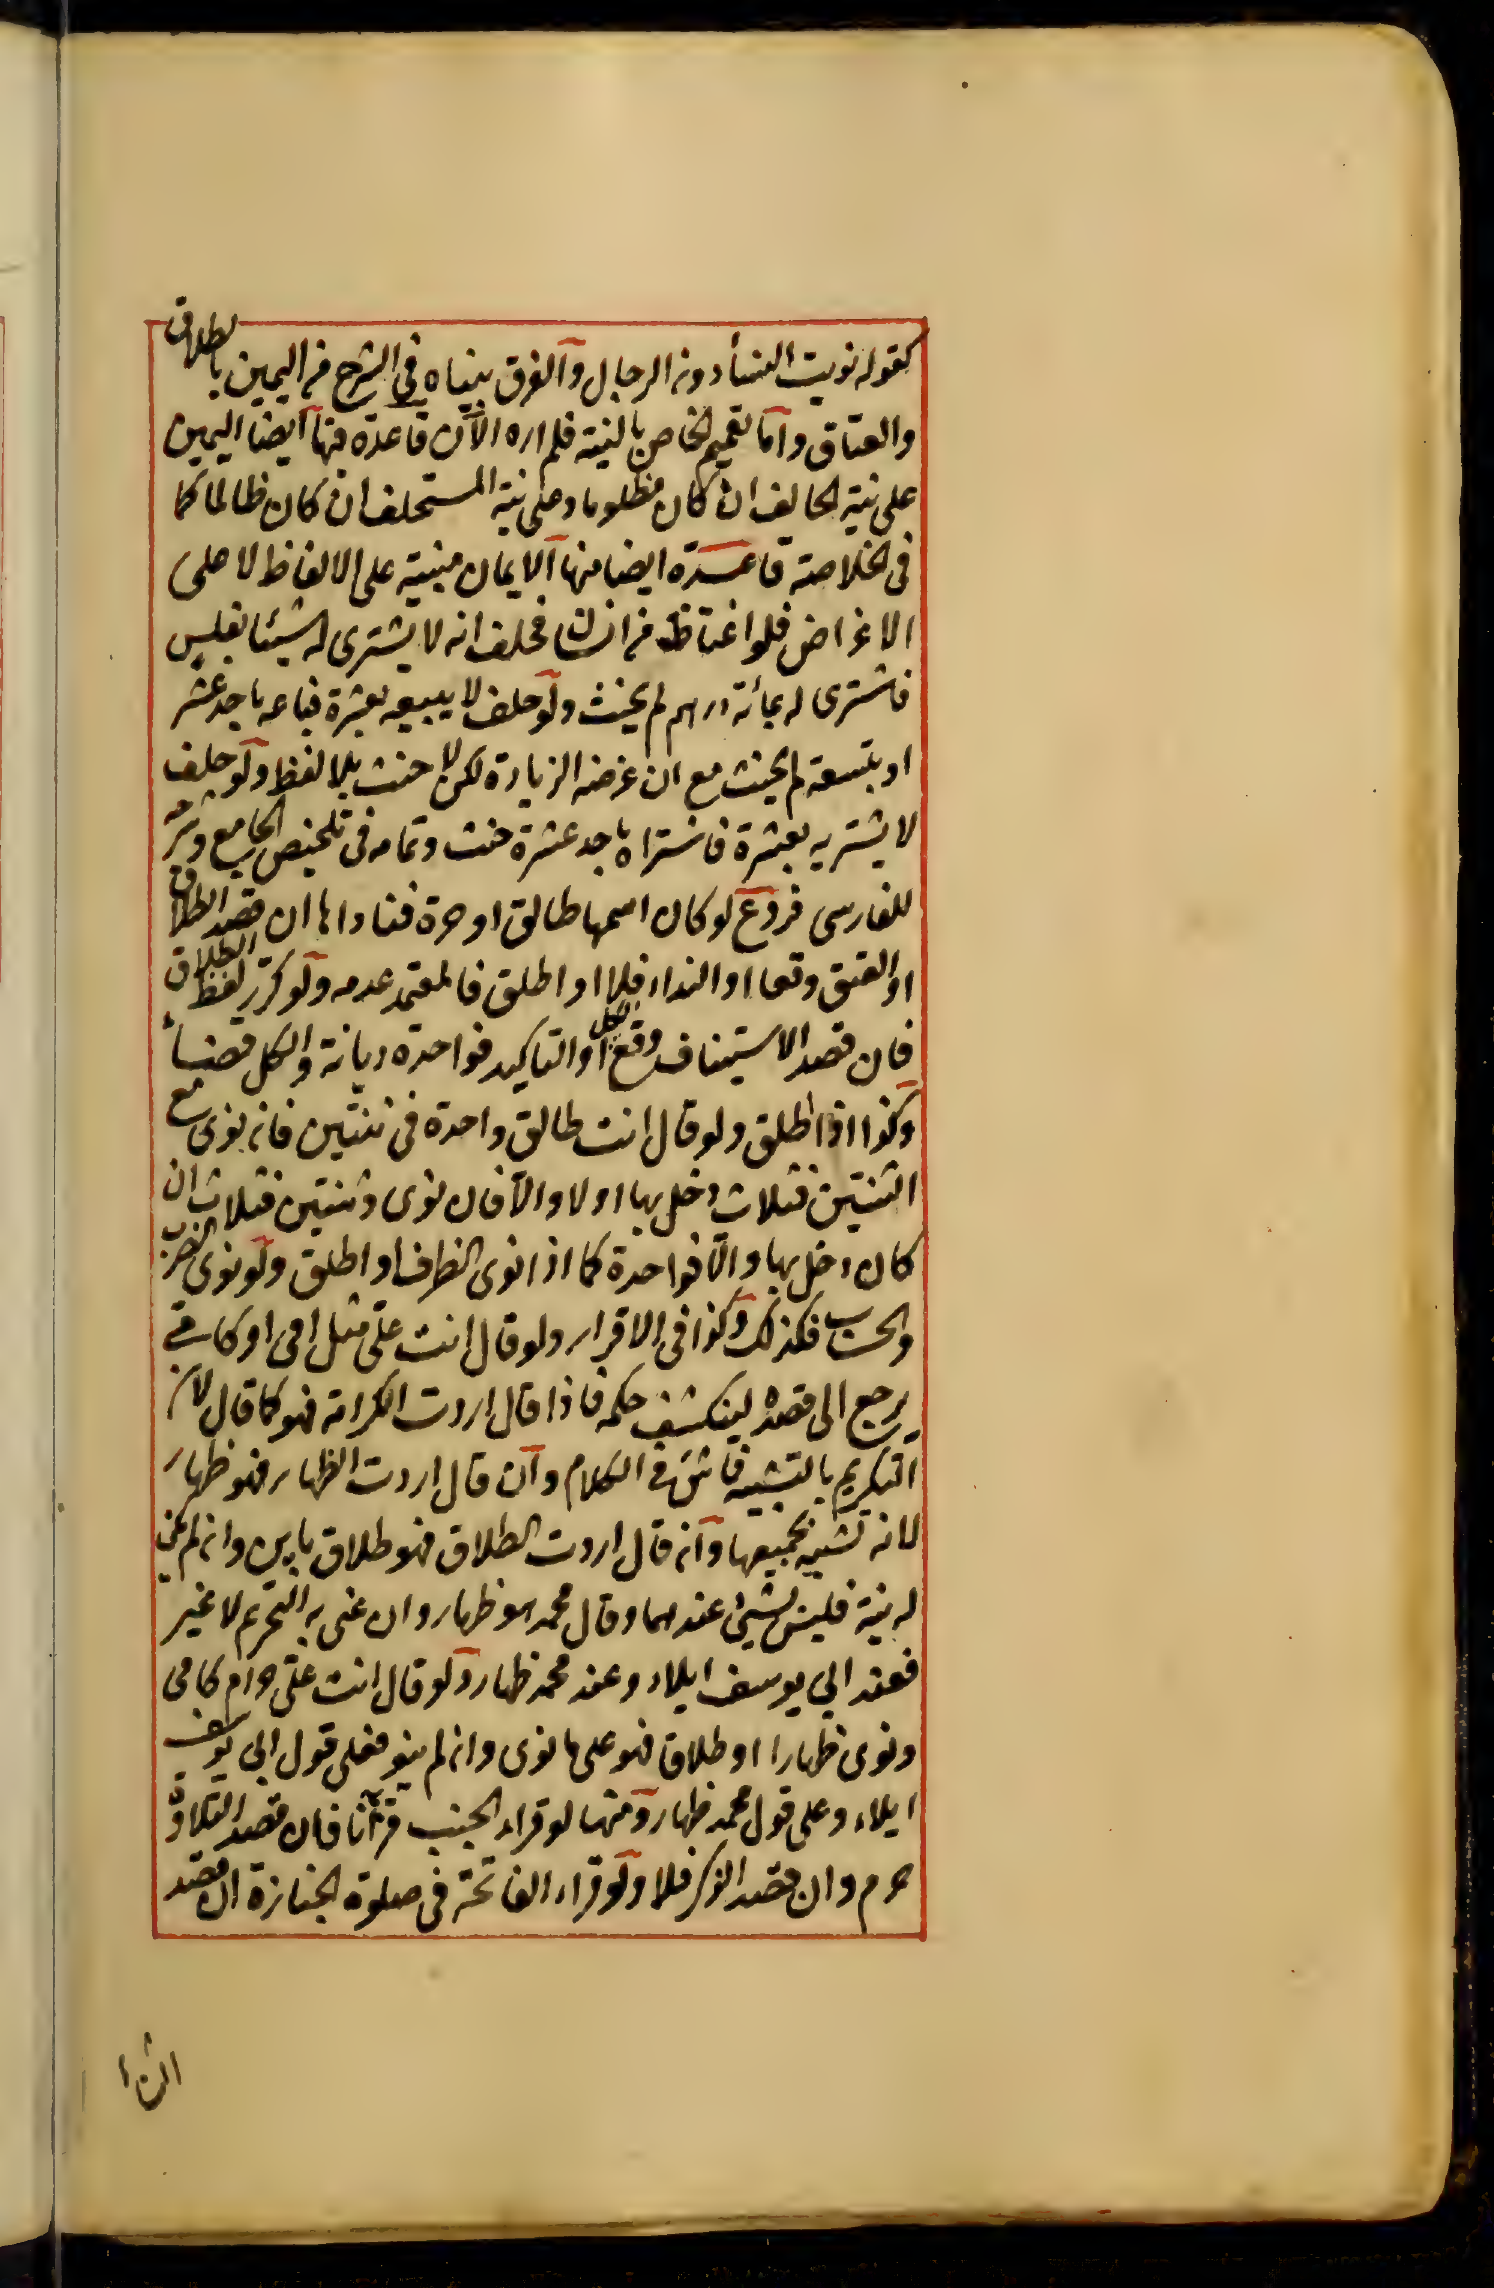 كقوله نويت النساء دون الرجال والفرق بيناه في الشرح من اليمين بالطلاق
والعتاق واما تعميم الخاص بالنية فلم اره الآن قاعدة فيها ايضا اليمين
على نية الحالف ان كان مظلوما وعلى نية المستحلف ان كان ظالما كما
في الخلاصة قاعدة ايضا منها الايمان مبنية على الالفاظ لا على
الاغراض فلو اغتاظ من انسان فحلف انه لا يشترى له شيئا بفلس
فاشترى له بمائة درهم لم يحنث ولو حلف لا يبيعه بعشرة فباعه باحد عشر
او بتسعة لم يحنث مع ان غرضه الزيادة لكن لا حنث بلا لفظ ولو حلف
لا يشتريه بعشرة فاشتراه باحد عشرة حنث وتمامه في تلخيص الجامع وشرحه
للفارسى فروع لو كان اسمها طالق او حرة فناداها ان قصد الطلاق
او العتق وقعا او النداء فلا او اطلق فالمعتمد عدمه ولو كرر لفظ الطلاق
فان قصد الاستيناف وقع الكل او التاكيد فواحدة ديانة والكل قضاء
وكذا اذا اطلق ولو قال انت طالق واحدة في ثنتين فان نوى مع
الثنتين فثلاث دخل بها اولا والا فان نوى وثنتين فثلاث ان
كان دخل بها والا فواحدة كما اذا نوى الظرف او اطلق ولو نوى الضرب
والحساب فكذلك وكذا في الاقرار ولو قال انت علي مثل امى او كامي
يرجع الى قصده لينكشف حكمه فاذا قال اردت الكرامة فهو كما قال لان
التكريم بالتشبيه فاش في الكلام وان قال اردت الظهار فهو ظهار
لانه تشبيه بجميعها وان قال اردت الطلاق فهو طلاق باين وان لم يكن
له نية فليس بشيئ عندهما وقال محمد هو ظهار وان عنى به التحريم لا غير
فعند ابي يوسف ايلاء وعند محمد ظهار ولو قال انت علي حرام كامى
ونوى ظهارا او طلاق فهو على ما نوى وان لم ينو فعلى قول ابى يوسف
ايلاء وعلى قول محمد ظهار ومنها لو قراء الجنب قرآنا فان قصد التلاوة
حرم وان قصد الذكر فلا ولو قراء الفاتحة في صلوة الجنازة ان قصد
الثناء